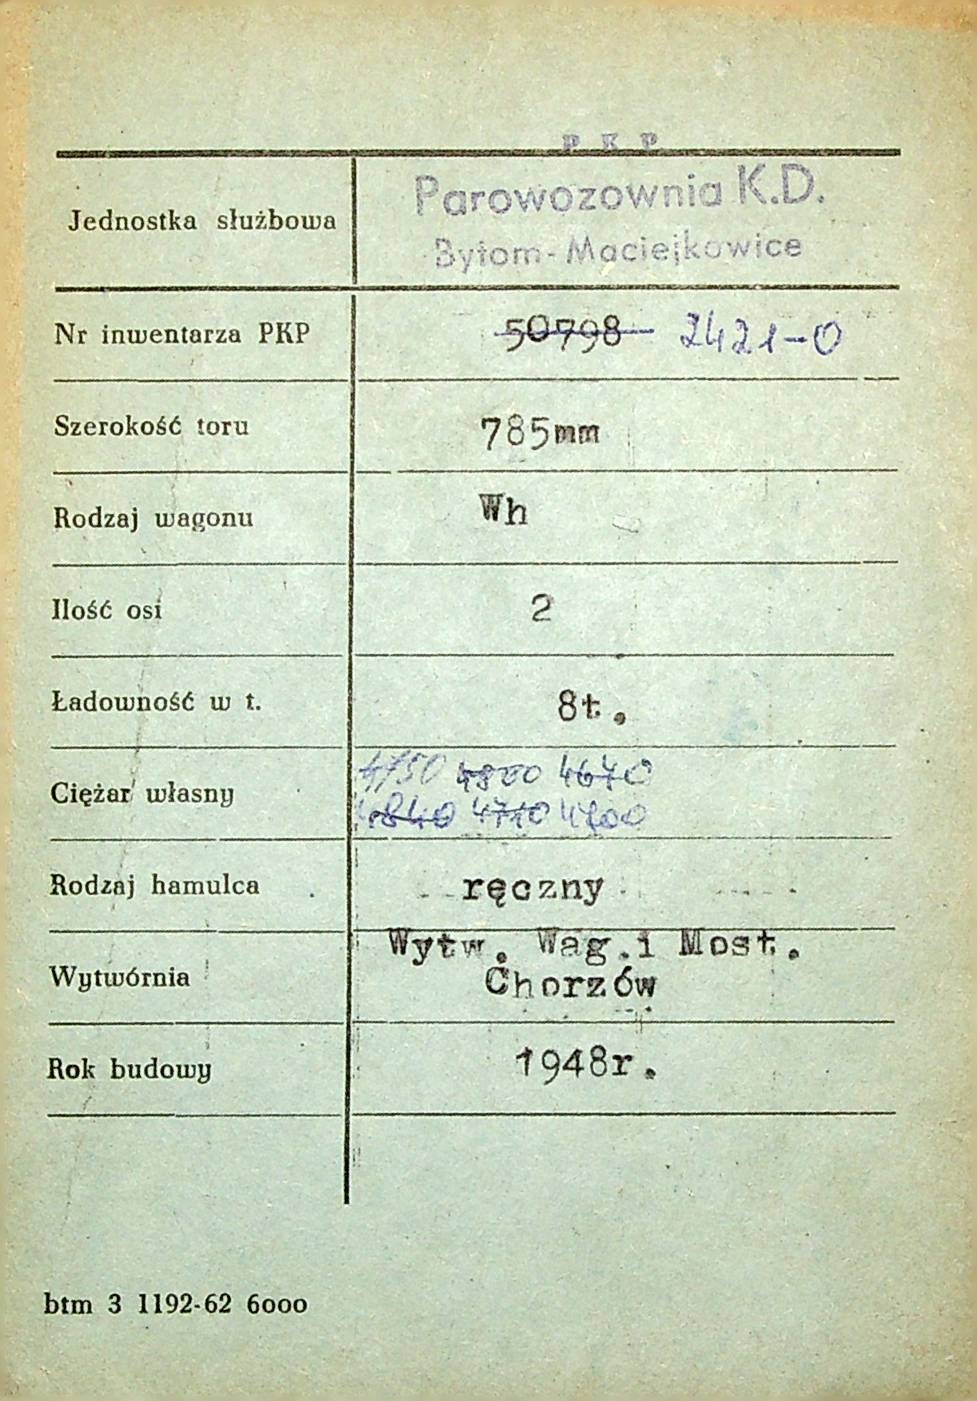 P K P
Jednostka służbowa Parowozownia K.D.
Bytom-Maciejkowice
Nr inwentarza PKP 50798 2421-0
Szerokość toru 785mm
Rodzaj wagonu Wh
Ilość osi 2
Ładowność w t. 8t.
Ciężar własny 4150 4800 4670
4840 4710
Rodzaj hamulca ręczny
Wytwórnia Wytw. Wag.i Most.
Chorzów
Rok budowy 1948r.
btm 3 1192-62 6000